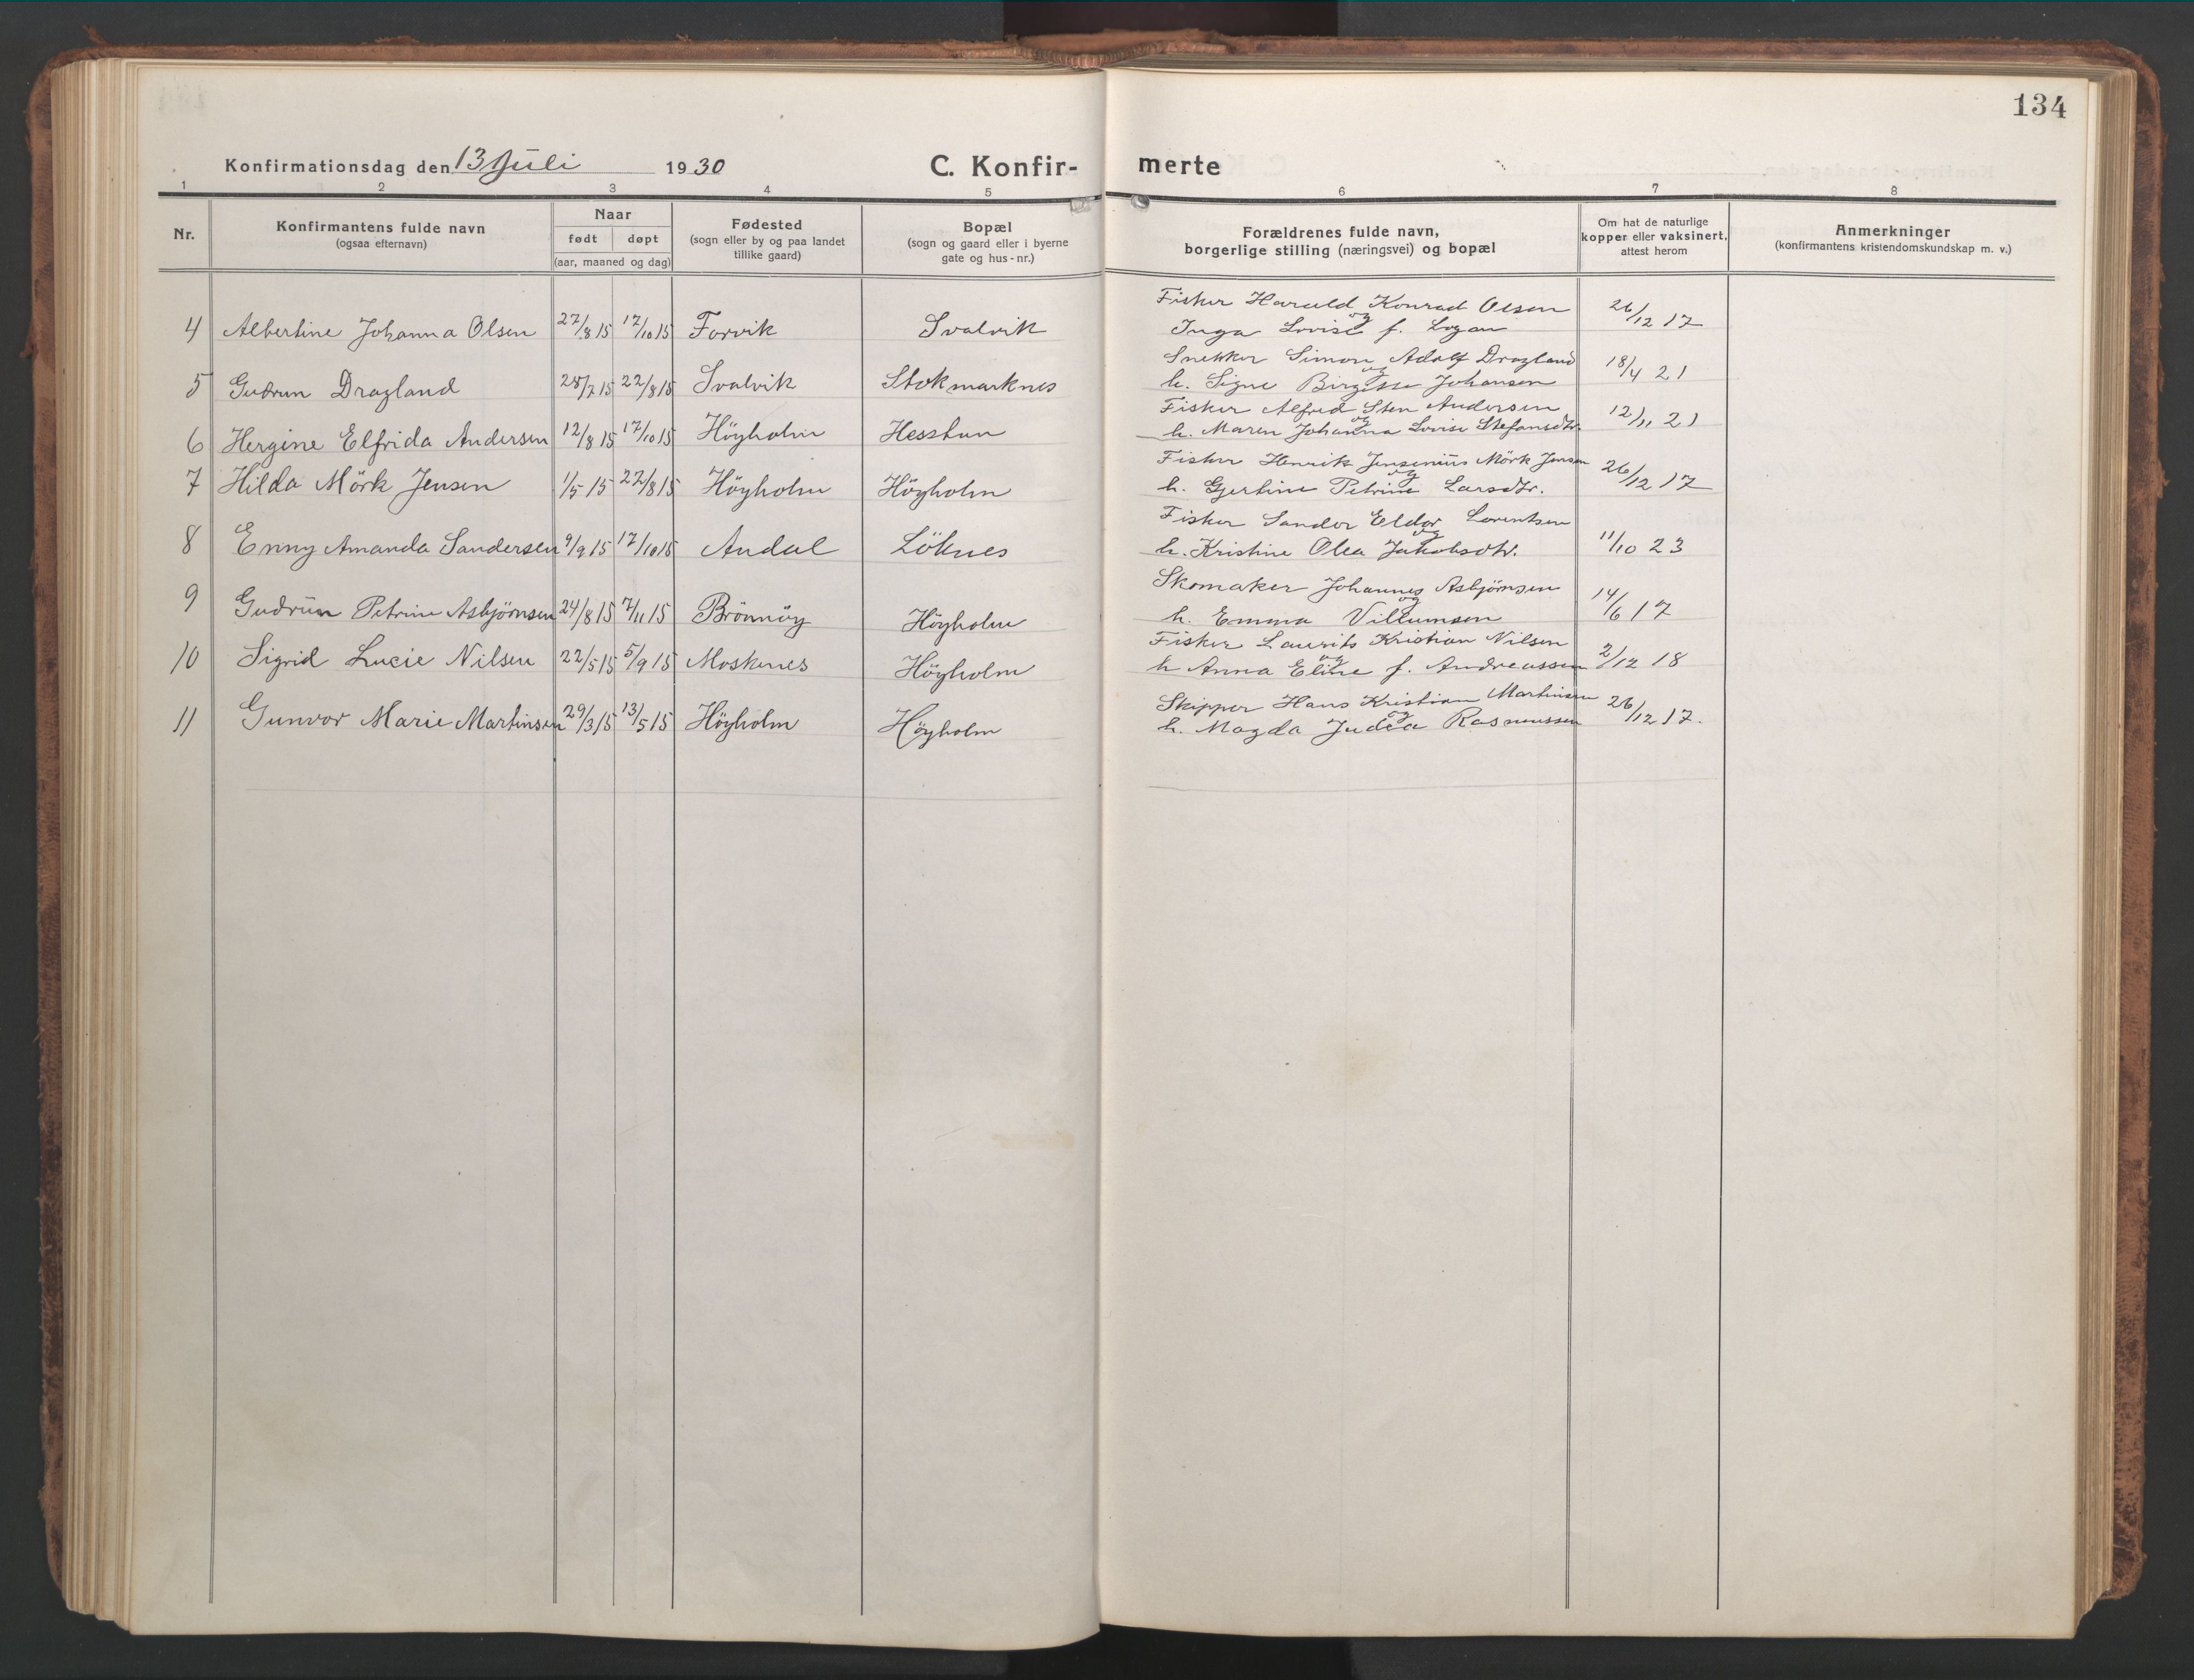 134
Konfirmationsdag den 13 Juli 1930 C. Konfir- merte
1 2 3 4 5 6 7 8
Nr. Konfirmantens fulde navn (ogsaa efternavn) Naar født døpt (aar, maaned og dag) Fødested (sogn eller by og paa landet tillike gaard) Bopæl (sogn og gaard eller i byerne gate og hus-nr.) Forældrenes fulde navn, borgerlige stilling (næringsvei) og bopæl Om hat de naturlige kopper eller vaksinert, attest herom Anmerkninger (konfirmantens kristendomskundskap m. v.)
4 Albertine Johanna Olsen 27/8 15 17/10 15 Forvik Svalvik Fisker Harald Konrad Olsen og Inga Lovise f. Logan 26/12 17
5 Gudrun Dragland 28/7 15 22/8 15 Svalvik Stokmarknes Snekker Simon Adolf Dragland og h. Signe Birgitte Johansen 18/4 21
6 Hergine Elfrida Andersen 12/8 15 17/10 15 Höyholm Hesstun Fisker Alfred Sten Andersen og h. Maren Johanna Lovise Stefansdtr. 12/11 21
7 Hilda Mörk Jensen 1/5 15 22/8 15 Höyholm Höyholm Fisker Henrik Jensenius Mörk Jensen og h. Gjertine Petrine Larsdtr. 26/12 17
8 Enny Amanda Sandersen 9/9 15 17/10 15 Andal Löknes Fisker Sander Eldor Lorentsen og h. Kristine Olea Jakobsdtr. 11/10 23
9 Gudrun Petrine Asbjørnsen 24/8 15 7/11 15 Brönnöy Höyholm Skomaker Johannes Asbjørnsen og h. Emma Villumsen 14/6 17
10 Sigrid Lucie Nilsen 22/5 15 5/9 15 Moskenes Höyholm Fisker Laurits Kristian Nilsen og h Anna Eline f. Andreassen 2/12 18
11 Gunvor Marie Martinsen 29/3 15 13/5 15 Höyholm Höyholm Skipper Hans Kristian Martinsen og h. Magda Judea Rasmussen 26/12 17.